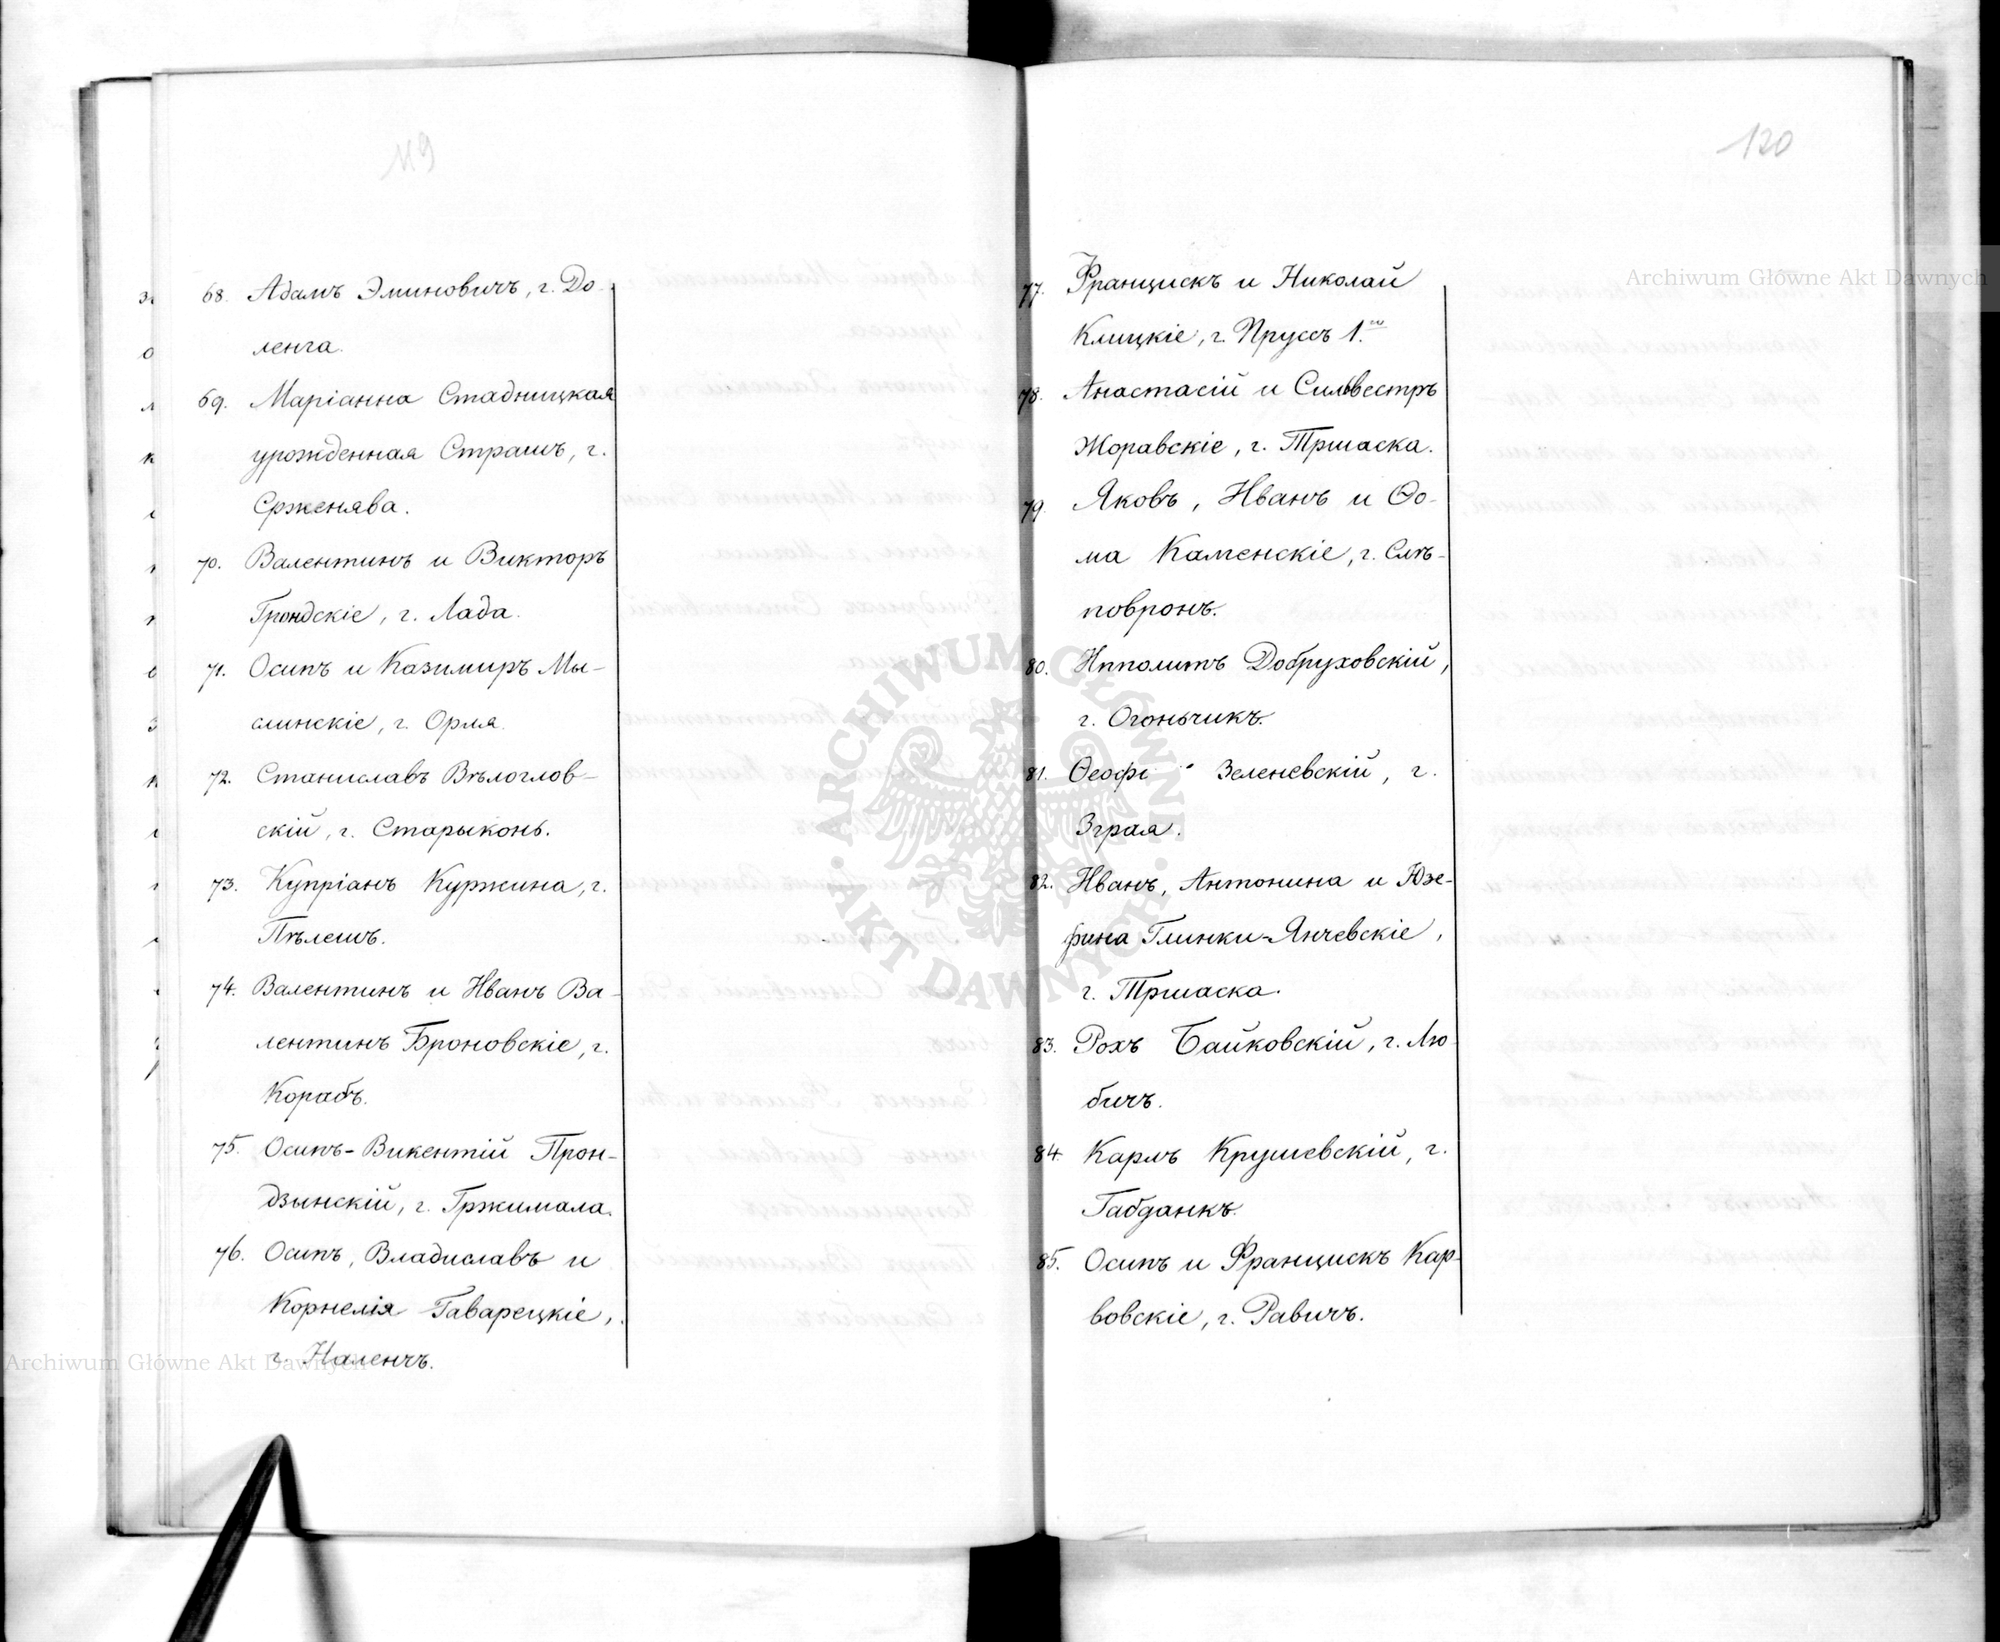 119
68. Адамъ Эминовичъ, г. До-
ленга.
69. Маріанна Стадницкая
урожденная Страшъ, г.
Срженява.
70. Валентинъ и Викторъ
Грондскіе, г. Лада.
71. Осипъ и Казимиръ Мы-
слинскіе, г. Орля.
72. Станиславъ Вѣлоглов-
скій, г. Старыконь.
73. Купріанъ Куржина, г.
Пѣлешъ.
74. Валентинъ и Иванъ Ва-
лентинъ Броновскіе, г.
Корабъ.
75. Осипъ-Викентій Прон-
дзынскій, г. Гржимала.
76. Осипъ, Владиславъ и
Корнелія Гаварецкіе,
г. Наленчъ.
120
77. Францискъ и Николай
Клицкіе, г. Пруссъ 1.го
78. Анастасій и Сильвестръ
Жоравскіе, г. Тршаска.
79. Яковъ, Иванъ и Ѳо-
ма Каменскіе, г. Слѣ-
повронъ.
80. Ипполитъ Добруховскій,
г. Огоньчикъ.
81. Ѳеофі Зеленевскій, г.
Зграя.
82. Иванъ, Антонина и Юзе-
фина Глинки-Янчевскіе,
г. Тршаска.
83. Рохъ Байковскій, г. Лю-
бичъ.
84. Карлъ Крушевскій, г.
Габданкъ.
85. Осипъ и Францискъ Кар-
вовскіе, г. Равичъ.
Archiwum Główne Akt Dawnych
ARCHIWUM GŁÓWNE · AKT DAWNYCH ·
Archiwum Główne Akt Dawnych